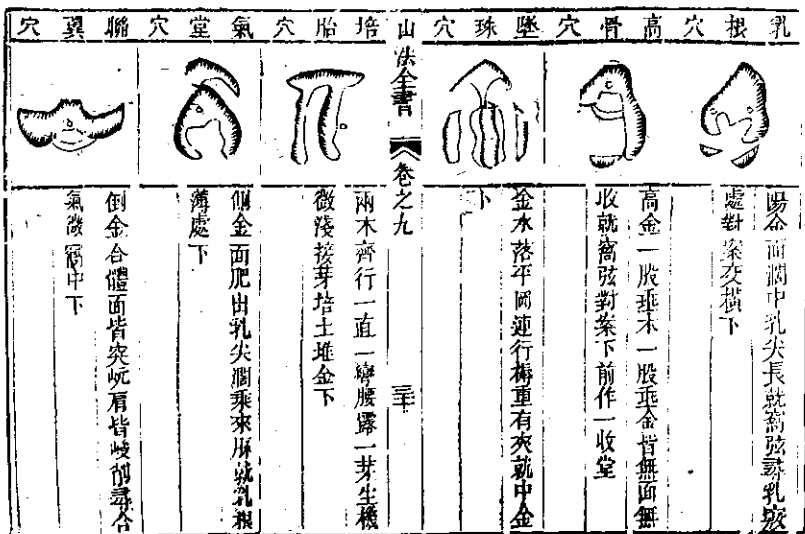 乳根穴
陽金面濶中乳尖長就窩弦尋乳發
處對案交橫下
高骨穴
高金一股垂木一股垂金皆無面無
收就窩弦對案下前作一收堂
墜珠穴
金水落平岡連行 重有夾就中金
下
山法全書 卷之九 三十
培胎穴
兩木齊行一直一彎腰露一芽生機
微淺接芽培土堆金下
氣堂穴
側金面肥出乳尖濶乘來 就乳根
薄處下
聯翼穴
倒金合體面皆突屼肩皆峻削尋合
氣微窩中下